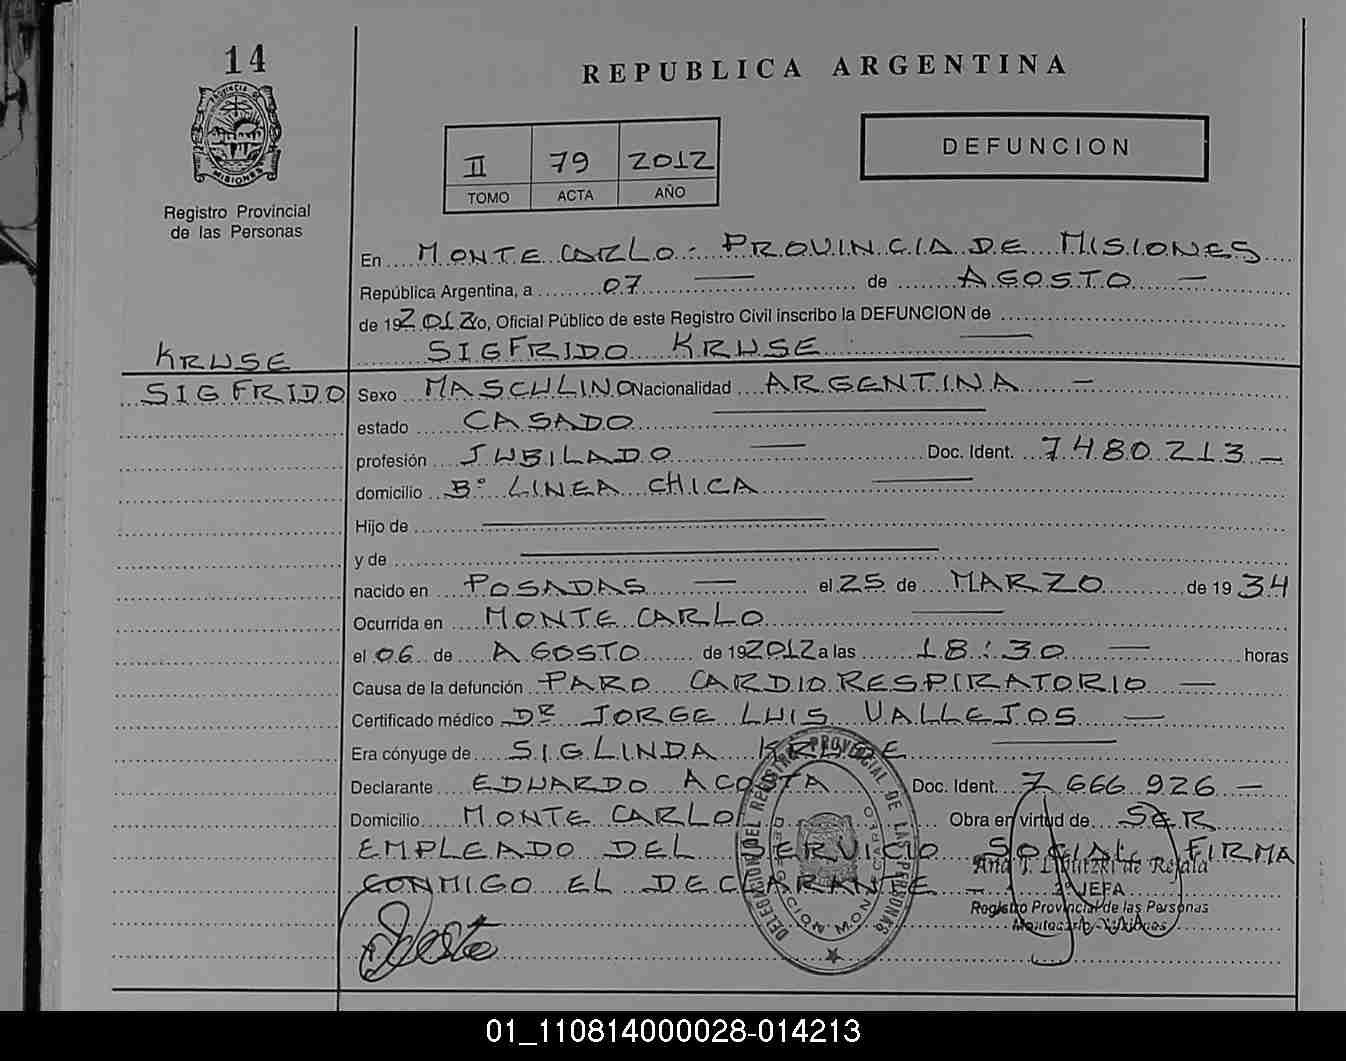 14
REPUBLICA ARGENTINA
PROVINCIA DE
MISIONES
Registro Provincial
de las Personas
II 79 2012
TOMO ACTA AÑO
DEFUNCION
En MONTE CARLO - PROVINCIA DE MISIONES
República Argentina, a 07 de AGOSTO
de 19 2012 Yo, Oficial Público de este Registro Civil inscribo la DEFUNCION de
SIGFRIDO KRUSE
KRUSE
SIGFRIDO
Sexo MASCULINO Nacionalidad ARGENTINA
estado CASADO
profesión JUBILADO Doc. Ident. 7480213
domicilio Bº LINEA CHICA
Hijo de
y de
nacido en POSADAS el 25 de MARZO de 19 34
Ocurrida en MONTE CARLO
el 06 de AGOSTO de 19 2012 a las 18:30 horas
Causa de la defunción PARO CARDIORESPIRATORIO
Certificado médico DR JORGE LUIS VALLEJOS
Era cónyuge de SIGLINDA KRUSE
Declarante EDUARDO ACOSTA Doc. Ident. 7 666 926
Domicilio MONTE CARLO Obra en virtud de SER
EMPLEADO DEL SERVICIO SOCIAL FIRMA
CONMIGO EL DECLARANTE
DELEGACION DEL REGISTRO PROVINCIAL DE LAS PERSONAS
DELEGACION MONTECARLO
Ana de Rejala
2º JEFA
Registro Provincial de las Personas
Montecarlo - Misiones
01_110814000028-014213